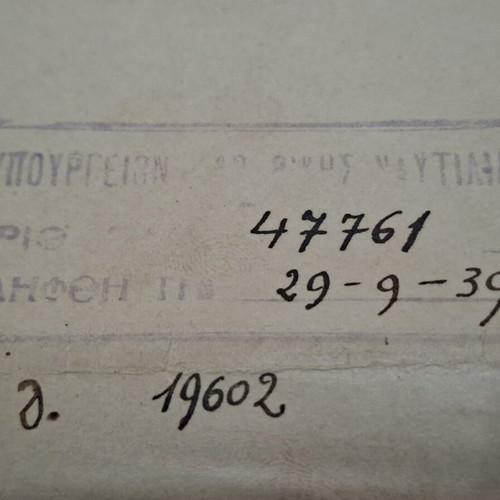 ΥΠΟΥΡΓΕΙΟΝ
ΡΙΘ 47761
ΛΗΦΘΗ ΤΗΝ 29-9-39
δ. 19602